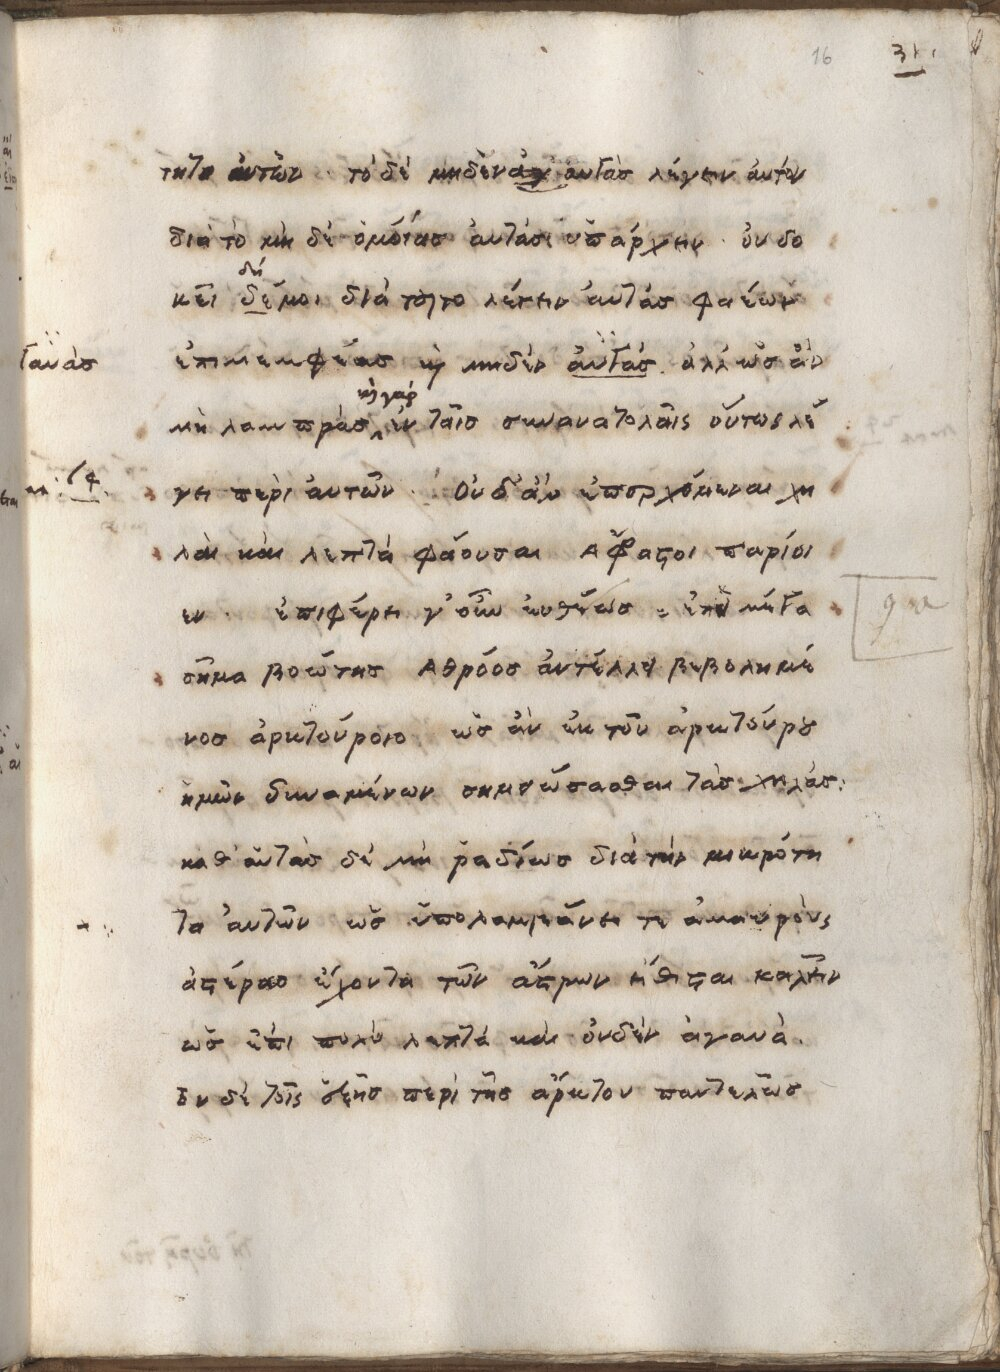 16
τητα αυτῶν. τὸ δὲ μηδὲν ἀγαυὰς λέγειν αυτὸν
διὰ τὸ μὴ δὲ ὁμοίας αὐτάσι ὑπάρχειν. οὐ δο
κεῖ δέ μοι διὰ τοῦτο λέγειν αὐτὰς φαέων
δή
ἐπιμεμφέας καὶ μηδὲν ἀγαυάς. ἀλλ' ὡς ἂν
γαυὰς
μὴ λαμπρὰς ἐν ταῖς συνανατολαῖς οὕτως λέ
καὶ γὰρ
γει περὶ αὐτῶν. Οὐδ' ἂν ἐπερχόμεναι χη
λαὶ καὶ λεπτὰ φάουσαι Ἄφραστοι παρίοι
εν. ἐπιφέρει γ' οὖν εὐθέως. ἐπεὶ μέγα
σῆμα βοώτης Ἀθρόος ἀντέλλει βεβολημέ
νος ἀρκτούροιο ὡς ἂν ἐκ τοῦ ἀρκτούρου
ἡμῶν δυναμένων σημειώσασθαι τὰς χηλάς.
καθ' αὑτὰς δὲ μὴ ῥαδίως διὰ τὴν μικρότη
τα αὐτῶν ὡς ὑπολαμβάνει τε ἀμαυροὺς
ἀστέρας ἔχοντα τῶν ἄστρων εἴθισται καλεῖν
ὡς ἐπὶ πολὺ λεπτὰ καὶ οὐδὲν ἀγαυὰ.
ἐν δὲ τοῖς ἑξῆς περὶ τῆς ἄρκτου παντελῶς